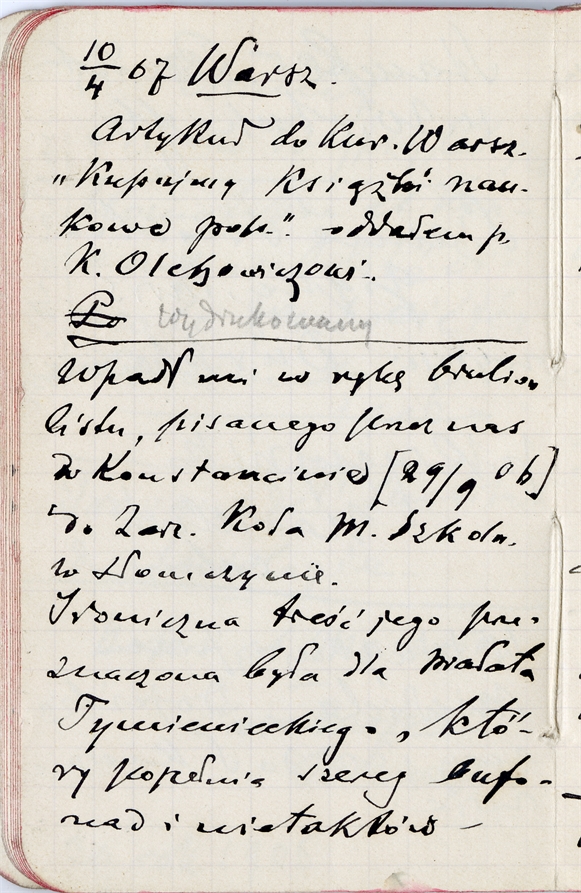 10/4 07 Warsz.
Artykuł do Kur. Warsz.
„Kupujmy Książki nau-
kowe pols." oddałem p.
K. Olchowiczowi.
Po wydrukowany
Wpadł mi w rękę brulion
listu, pisanego przez nas
w Konstancinie [29/9 06]
do Zarz. Koła M. Szkoln.
w Słomczynie.
Ironiczna treść jego prze-
znaczona była dla
Tymienieckiego, któ-
ry popełnia szereg bufo-
nad i nietaktów –